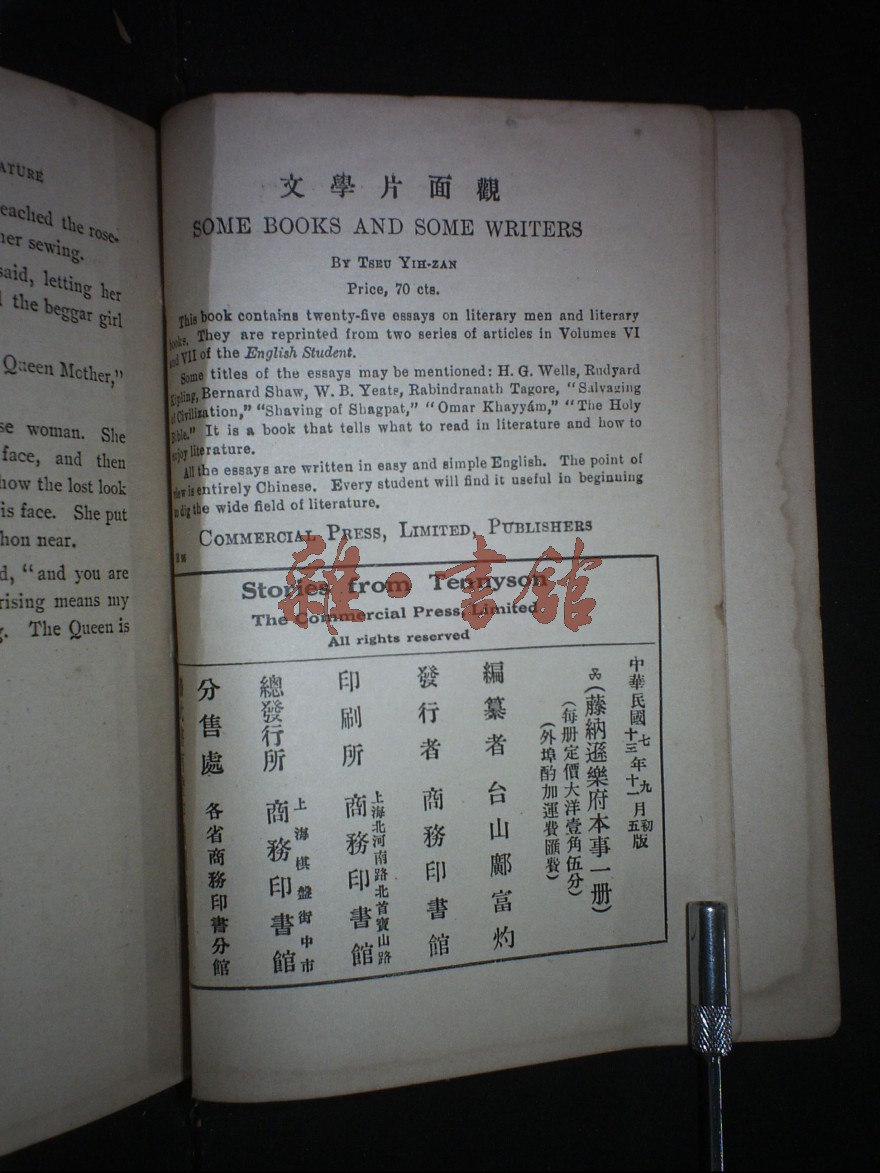 ATURE
eached the rose-
her sewing.
said, letting her
the beggar girl
Queen Mother,”
se woman. She
face, and then
how the lost look
is face. She put
hon near.
d, “and you are
rising means my
The Queen is
文學片面觀
SOME BOOKS AND SOME WRITERS
BY TSEU YIH-ZAN
Price, 70 cts.
This book contains twenty-five essays on literary men and literary
books. They are reprinted from two series of articles in Volumes VI
and VII of the English Student.
Some titles of the essays may be mentioned: H. G. Wells, Rudyard
Kipling, Bernard Shaw, W. B. Yeats, Rabindranath Tagore, “Salvaging
of Civilization,” “Shaving of Shagpat,” “Omar Khayyám,” “The Holy
Bible.” It is a book that tells what to read in literature and how to
enjoy literature.
All the essays are written in easy and simple English. The point of
view is entirely Chinese. Every student will find it useful in beginning
to dig the wide field of literature.
COMMERCIAL PRESS, LIMITED, PUBLISHERS
Stories from Tennyson
The Commercial Press, Limited
All rights reserved
中華民國七年九月初版
十三年十一月五版
(藤納遜樂府本事一册)
(每册定價大洋壹角伍分)
(外埠酌加運費匯費)
編纂者 台山鄺富灼
發行者 商務印書館
印刷所 上海北河南路北首寶山路 商務印書館
總發行所 上海棋盤街中市 商務印書館
分售處 各省商務印書分館
雜·書館